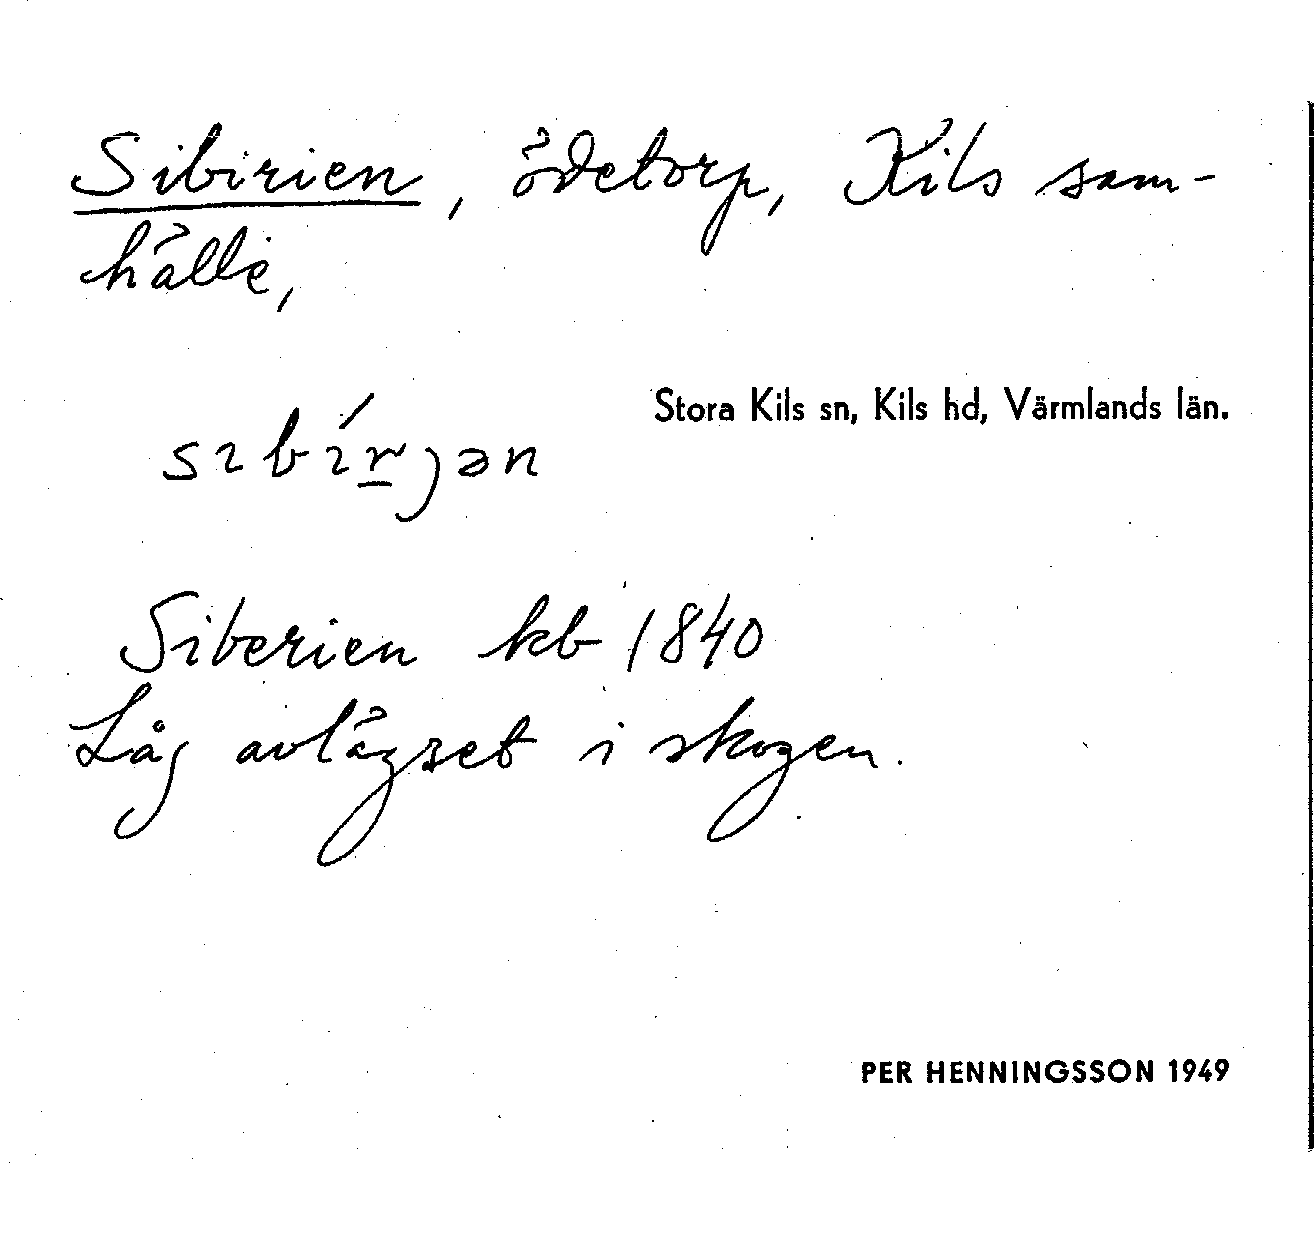 Sibirien, ödetorp, Kils sam-
hälle,
Stora Kils sn, Kils hd, Värmlands län.
sıbı́r̲jən
Siberien kb 1840
Låg avlägset i skogen.
PER HENNINGSSON 1949